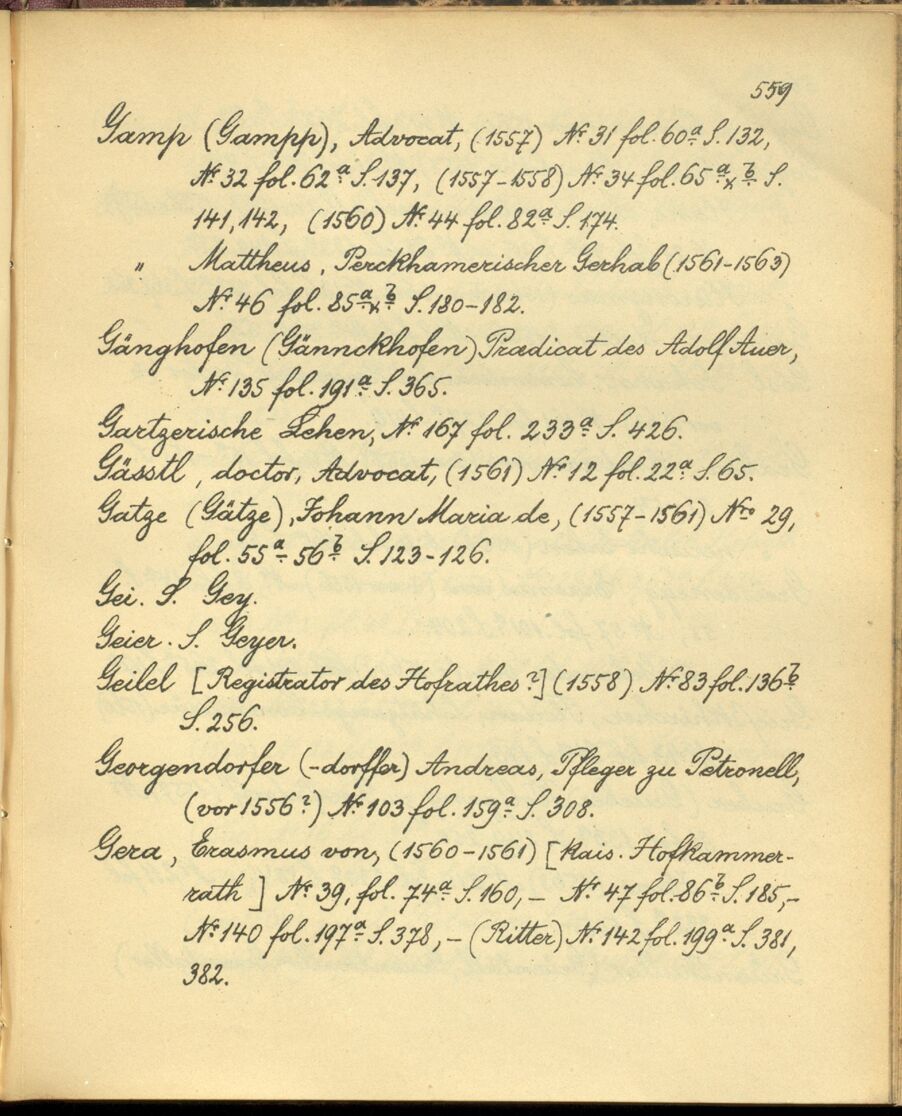 559
Gamp (Gampp), Advocat, (1557) Nr. 31 fol. 60a S. 132,
Nr. 32 fol. 62a S. 137, (1557-1558) Nr. 34 fol. 65a x b S.
141, 142, (1560) Nr. 44 fol. 82a S. 174.
" Mattheus, Perckhamerischer Gerhab (1561-1563)
Nr. 46 fol. 85a x b S. 180-182.
Gänghofen (Gännckhofen) Prædicat des Adolf Auer,
Nr. 135 fol. 191a S. 365.
Gartzerische Lehen, Nr. 167 fol. 233a S. 426.
Gässtl, doctor, Advocat, (1561) Nr. 12 fol. 22a S. 65.
Gatze (Gätze), Johann Maria de, (1557-1561) Nro 29,
fol. 55a - 56b S. 123-126.
Gei. S. Gey.
Geier. S. Geyer.
Geilel [Registrator des Hofrathes?] (1558) Nr. 83 fol. 136b
S. 256.
Georgendorfer (-dorffer) Andreas, Pfleger zu Petronell,
(vor 1556?) Nr. 103 fol. 159a S. 308.
Gera, Erasmus von, (1560-1561) [Kais. Hofkammer-
rath] Nr. 39, fol. 74a S. 160, - Nr. 47 fol. 86b S. 185, -
Nr. 140 fol. 197a S. 378, - (Ritter) Nr. 142 fol. 199a S. 381,
382.